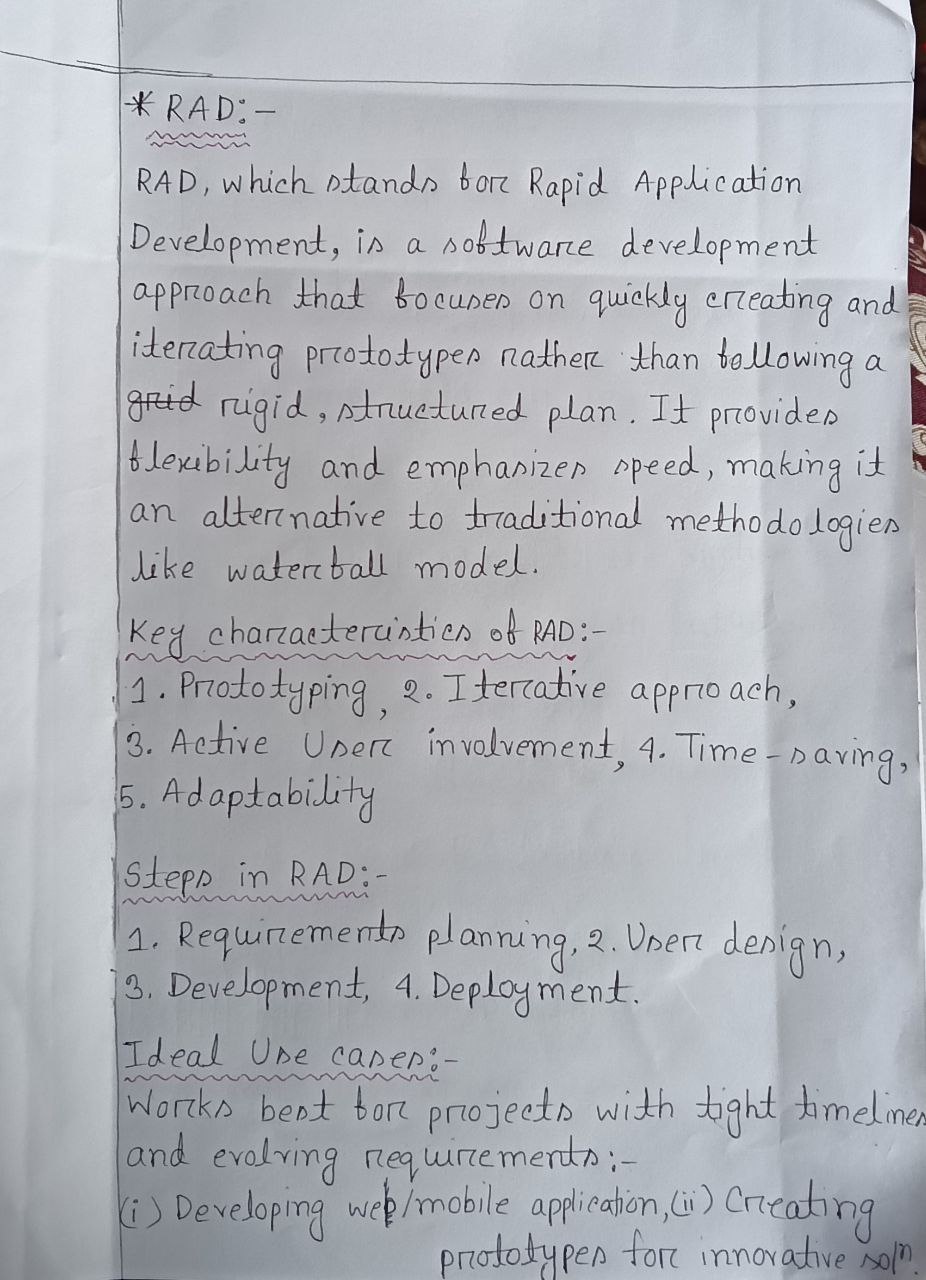 * RAD:-
RAD, which stands for Rapid Application
Development, is a software development
approach that focuses on quickly creating and
iterating prototypes rather than following a
grid rigid, structured plan. It provides
flexibility and emphasizes speed, making it
an alternative to traditional methodologies
like waterfall model.
Key characteristics of RAD:-
1. Prototyping, 2. Iterative approach,
3. Active User involvement, 4. Time-saving,
5. Adaptability
Steps in RAD:-
1. Requirements planning, 2. User design,
3. Development, 4. Deployment.
Ideal Use cases:-
Works best for projects with tight timelines
and evolving requirements:-
(i) Developing web/mobile application, (ii) Creating
prototypes for innovative solⁿ.